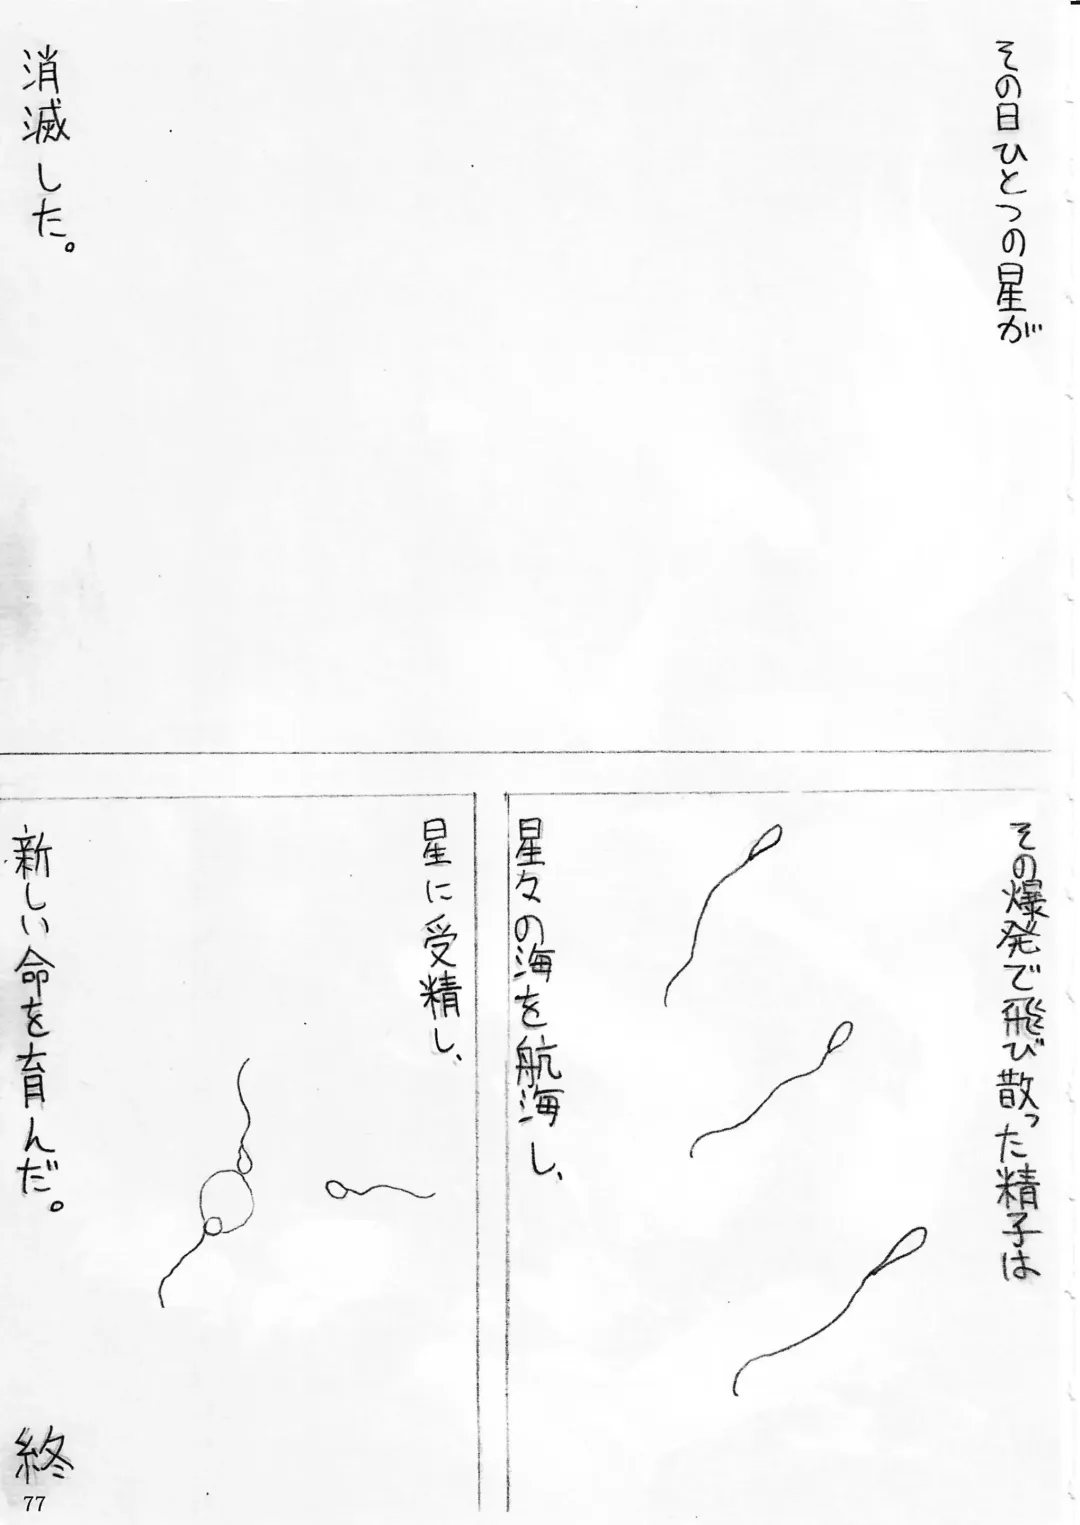 その日ひとつの星が
消滅した。
その爆発で飛び散った精子は
星々の海を航海し、
星に受精し、
新しい命を育んだ。
終
77